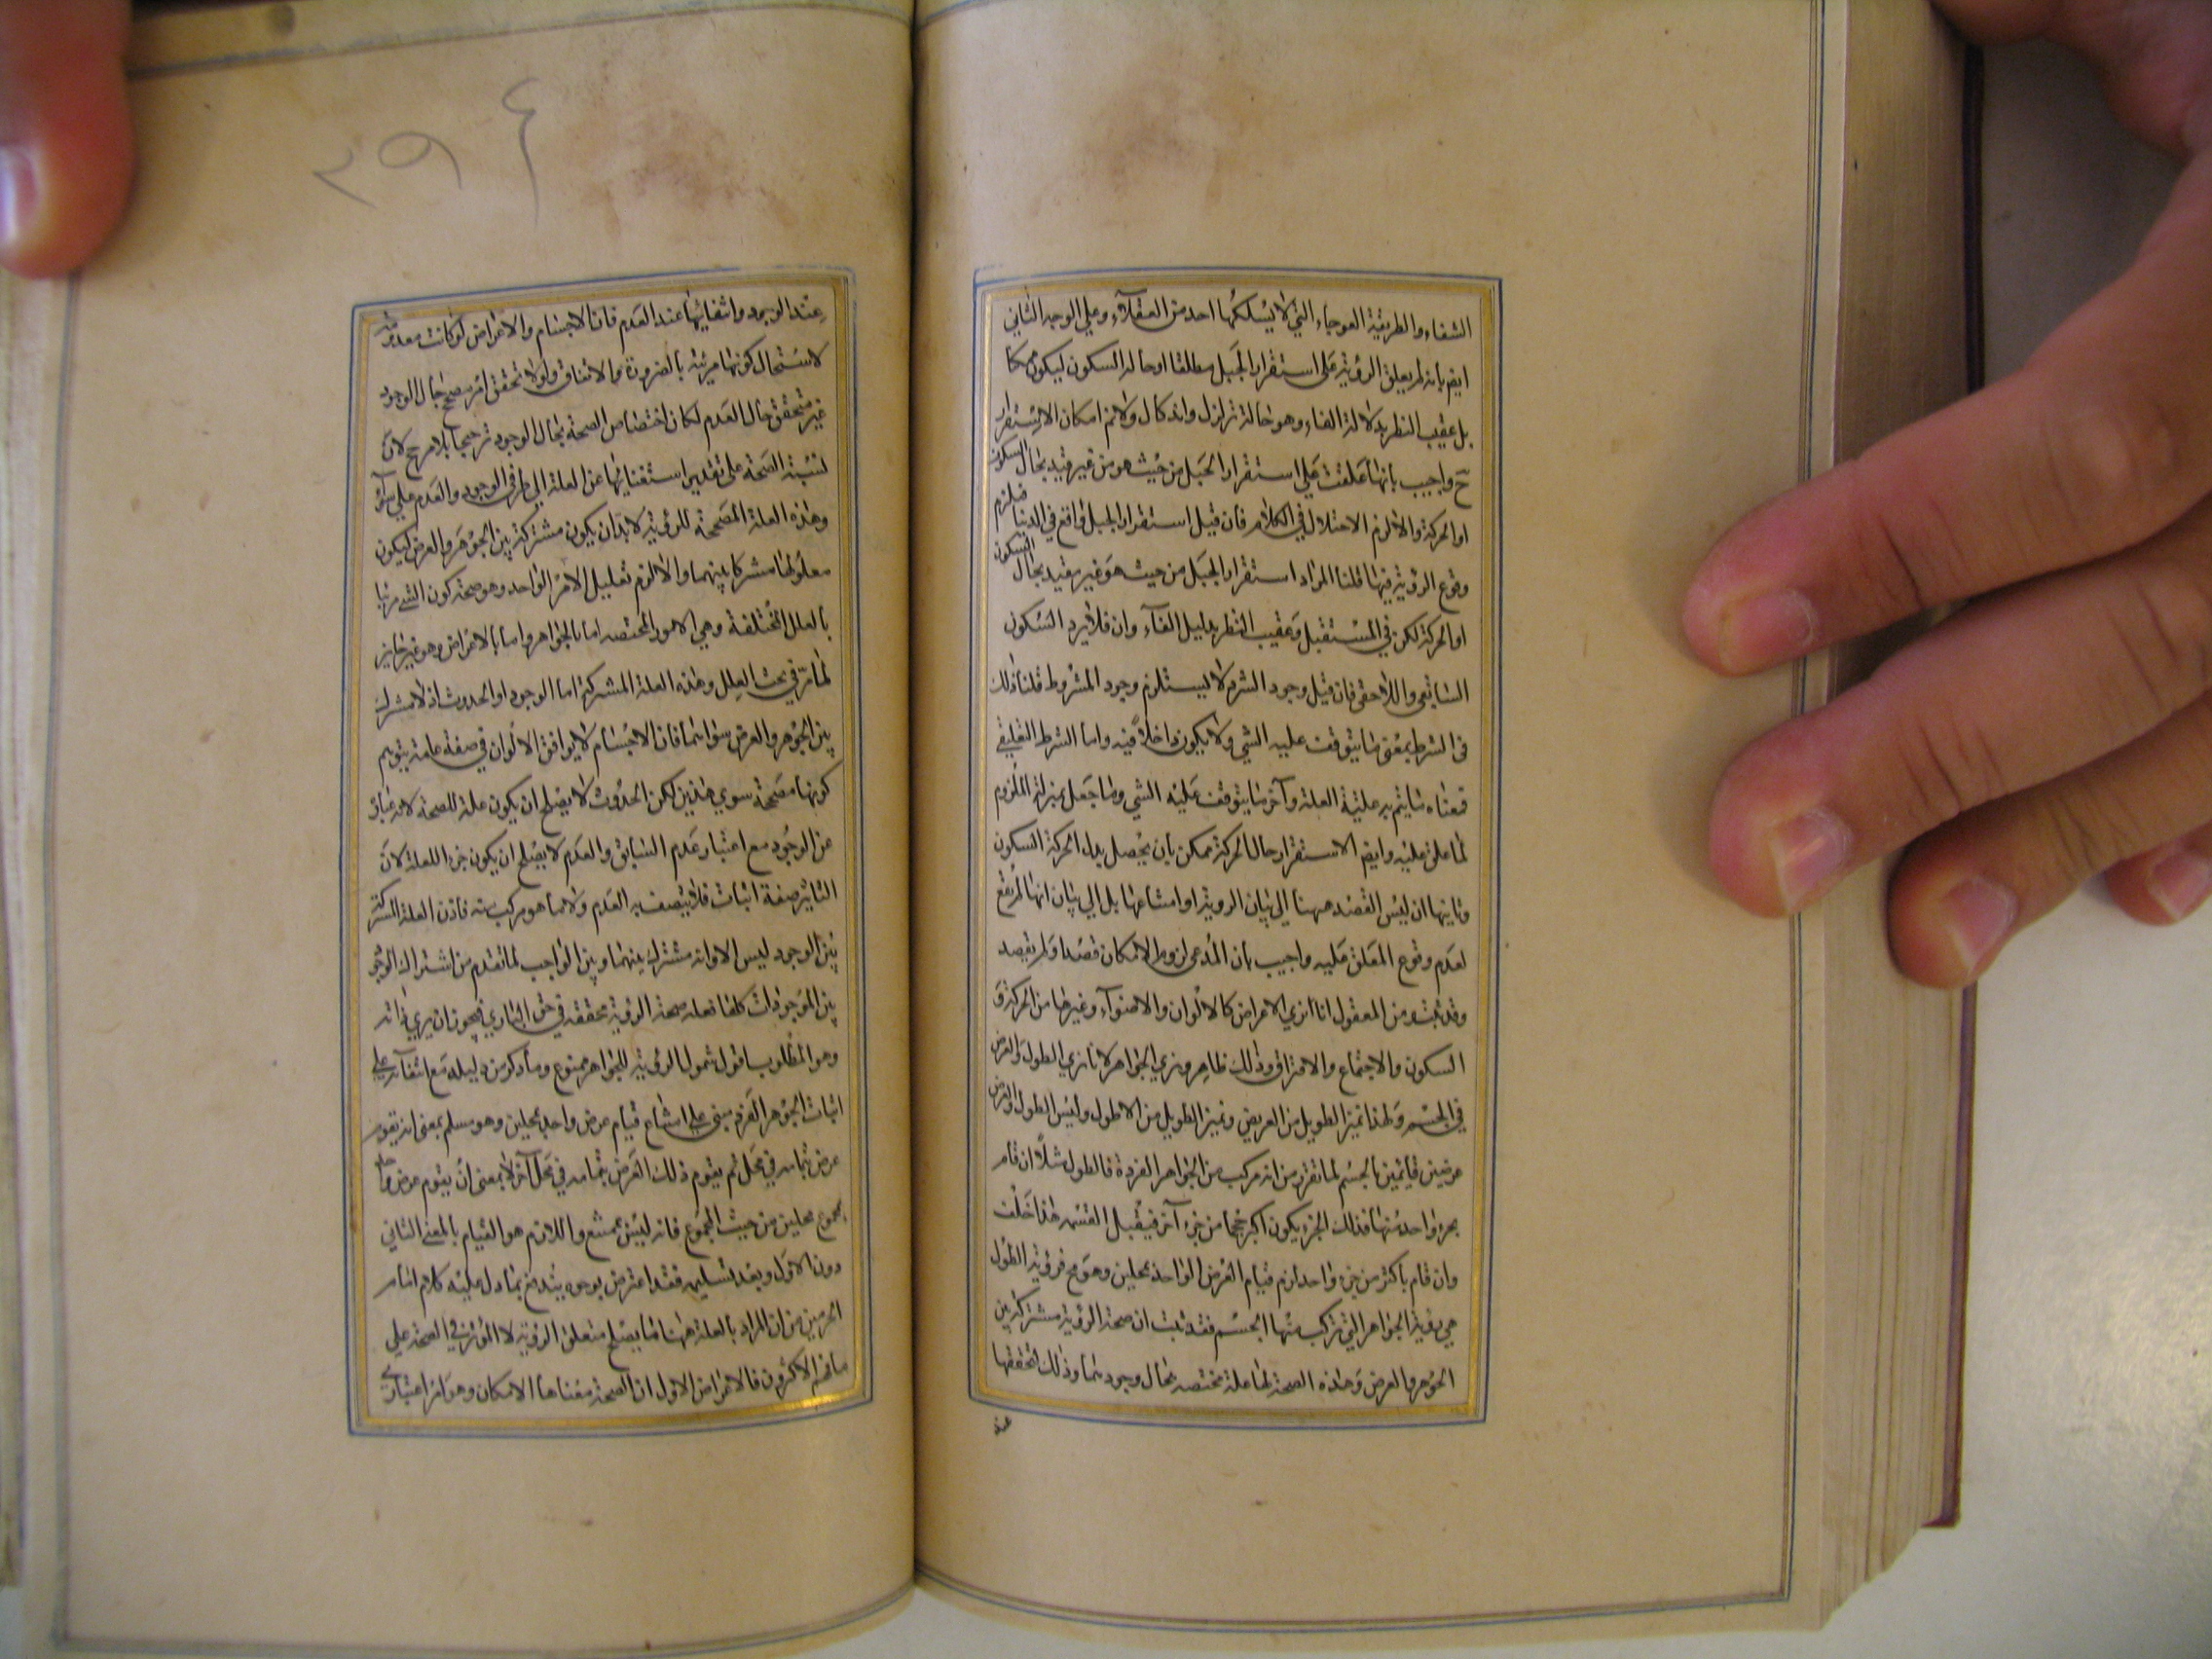 الشفاء والطريقة العوجاء التي لا يسلكها احد من العقلآء وعلي الوجه الثاني
ايضا بانه لم يعلق الرؤية على استقرار الجبل مطلقا او حالة السكون ليكون ممكنا
بل عقيب النظر بدلالة الفاء وهو حالة تزلزل واندكاك ولانم امكان الاستقرار
ح واجيب بانها علقت علي استقرار الجبل من حيث هو من غير قيد بحال السكون
او الحركة والا لزم الاختلال في الكلام فان قيل استقرار الجبل واقع في الدنيا فلزم
وقوع الرؤية فيها قلنا المراد استقرار الجبل من حيث هو غير مقيد بحال السكون
او الحركة لكن في المستقبل وعقيب النظر بدليل الفآء وان فلا يرد السكون
السابق واللاحق فان قيل وجود الشرط لا يستلزم وجود المشروط قلنا ذلك
في الشرط بمعنى ما يتوقف عليه الشي ولا يكون داخلا فيه واما الشرط التعليقي
فمعناه ما يتم به علية العلة وآخر ما يتوقف عليه الشي وما جعل بمنزلة الملزوم
لما علق عليه وايضا الاستقرار حال الحركة ممكن بان يحصل بدل الحركة السكون
وثانيها ان ليس القصد ههنا الي بيان الروية او امتناعها بل الي بيان انها لم يقع
لعدم وقوع المعلق عليه واجيب بان المدعي لزوم الامكان قصدا ولم يقصد
وقد ثبت من المعقول انا نري الاعراض كالالوان والاضوآء وغيرها من الحركة و
السكون والاجتماع والافتراق وذلك ظاهر ونري الجواهر لانا نري الطول والعرض
في الجسم ولهذا نميز الطويل من العريض ونميز الطويل من الاطول وليس الطول والعرض
عرضين قايمين بالجسم لما تقرر من انه مركب من الجواهر الفردة فالطول مثلا ان قام
بجزء واحد منها فذلك الجزء يكون اكبر حجما من جزء آخر فيقبل القسمة هذا خلف
وان قام باكثر من جزء واحد لزم قيام العرض الواحد بمحلين وهو مح فرؤية الطول
هي رؤية الجواهر التي تركب منها الجسم فقد ثبت ان صحة الرؤية مشتركة بين
الجوهر والعرض وهذه الصحة لها علة مختصة بحال وجودهما وذلك لتحققها
عند
٢٩٤
عند الوجود وانتفائها عند العدم فان الاجسام والاعراض لو كانت معدومة
لاستحال كونها مرئية بالضرورة والاتفاق ولولا تحقق امر مصحح حال الوجود
غير متحقق حال العدم لكان اختصاص الصحة بحال الوجود ترجيحا بلا مرجح لان
نسبة الصحة على تقدير استغنائها عن العلة الي طرفي الوجود والعدم علي سوآء
وهذه العلة المصححة للرؤية لابد ان يكون مشتركة بين الجوهر والعرض ليكون
معلولها مشتركا بينهما والا لزم تعليل الامر الواحد وهو صحة كون الشي مرئيا
بالعلل المختلفة وهي الامور المختصة اما بالجواهر واما بالاعراض وهو غير جايز
لما مر في بحث العلل وهذه العلة المشتركة اما الوجود او الحدوث اذ لا مشترك
بين الجوهر والعرض سواهما فان الاجسام لا يوافق الالوان في صفة عامة يتوهم
كونها مصححة سوي هذين لكن الحدوث لا يصلح ان يكون علة للصحة لانه عبارة
عن الوجود مع اعتبار عدم السابق والعدم لا يصلح ان يكون جزء العلة لان
التاثير صفة اثبات فلا يتصف به العدم ولا ما هو مركب منه فاذن العلة المشتركة
بين الوجود ليس الا وانه مشترك بينهما وبين الواجب لما تقدم من اشتراك الوجود
بين الموجودات كلها فعلة صحة الرؤية محققة في حق الباري فيجوز ان يري ذاته
وهو المطلوب اقول شمول الرؤية للجواهر ممنوع وما ذكر من دليله مع ابتنآئه علي
اثبات الجوهر الفرد مبني علي امتناع قيام عرض واحد بمحلين وهو مسلم بمعني انه يقوم
عرض بتمامه في محل ثم يقوم ذلك العرض بتمامه في محل آخر لا بمعني ان يقوم عرض
بمجموع محلين من حيث المجموع فانه ليس بممتنع واللازم هو القيام بالمعني الثاني
دون الاول وبعد تسليمه فقد اعترض بوجوه يندفع بما دل عليه كلام امام
الحرمين من ان المراد بالعلة ههنا ما يصلح متعلق الرؤية لا المؤثر في الصحة علي
ما فهم الاكثرون فالاعتراض الاول ان الصحة معناها الامكان وهو امر اعتباري